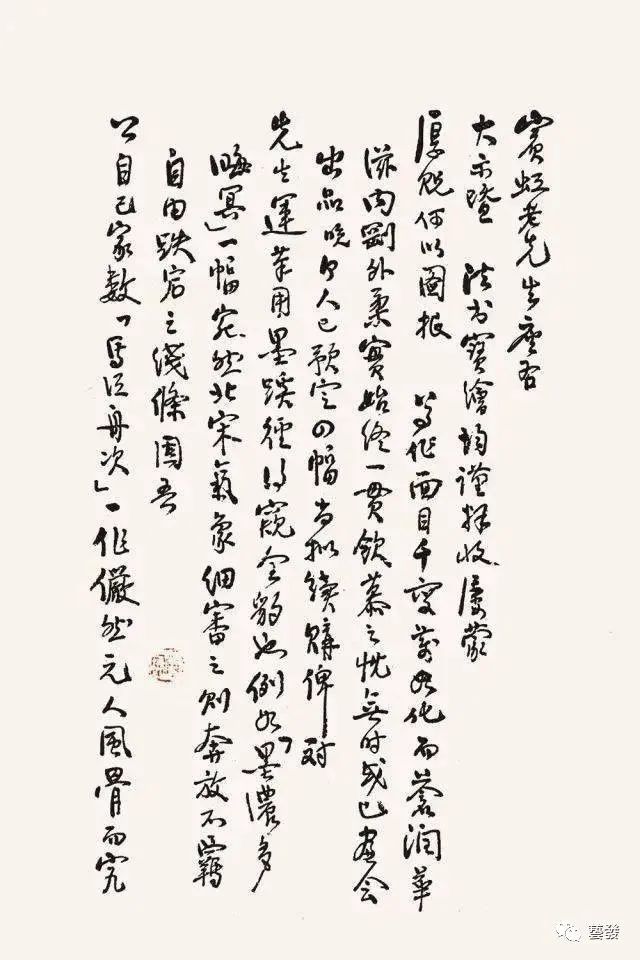 賓虹老先生座右
大示暨 法書寶繪均謹拜收屢蒙
厚貺何以圖報 尊作面目千變萬化而蒼潤華
滋內剛外柔實始終一貫欽慕之忱無時或已畫會
出品晚個人已預定四幅尚擬續購俾對
先生運筆用墨蹊徑得窺全豹也例如「墨濃多
晦冥」一幅宛然北宋氣象細審之則奔放不羈
自由跌宕之綫條固吾
公自己家數「馬江舟次」一作儼然元人風骨而究
藝發